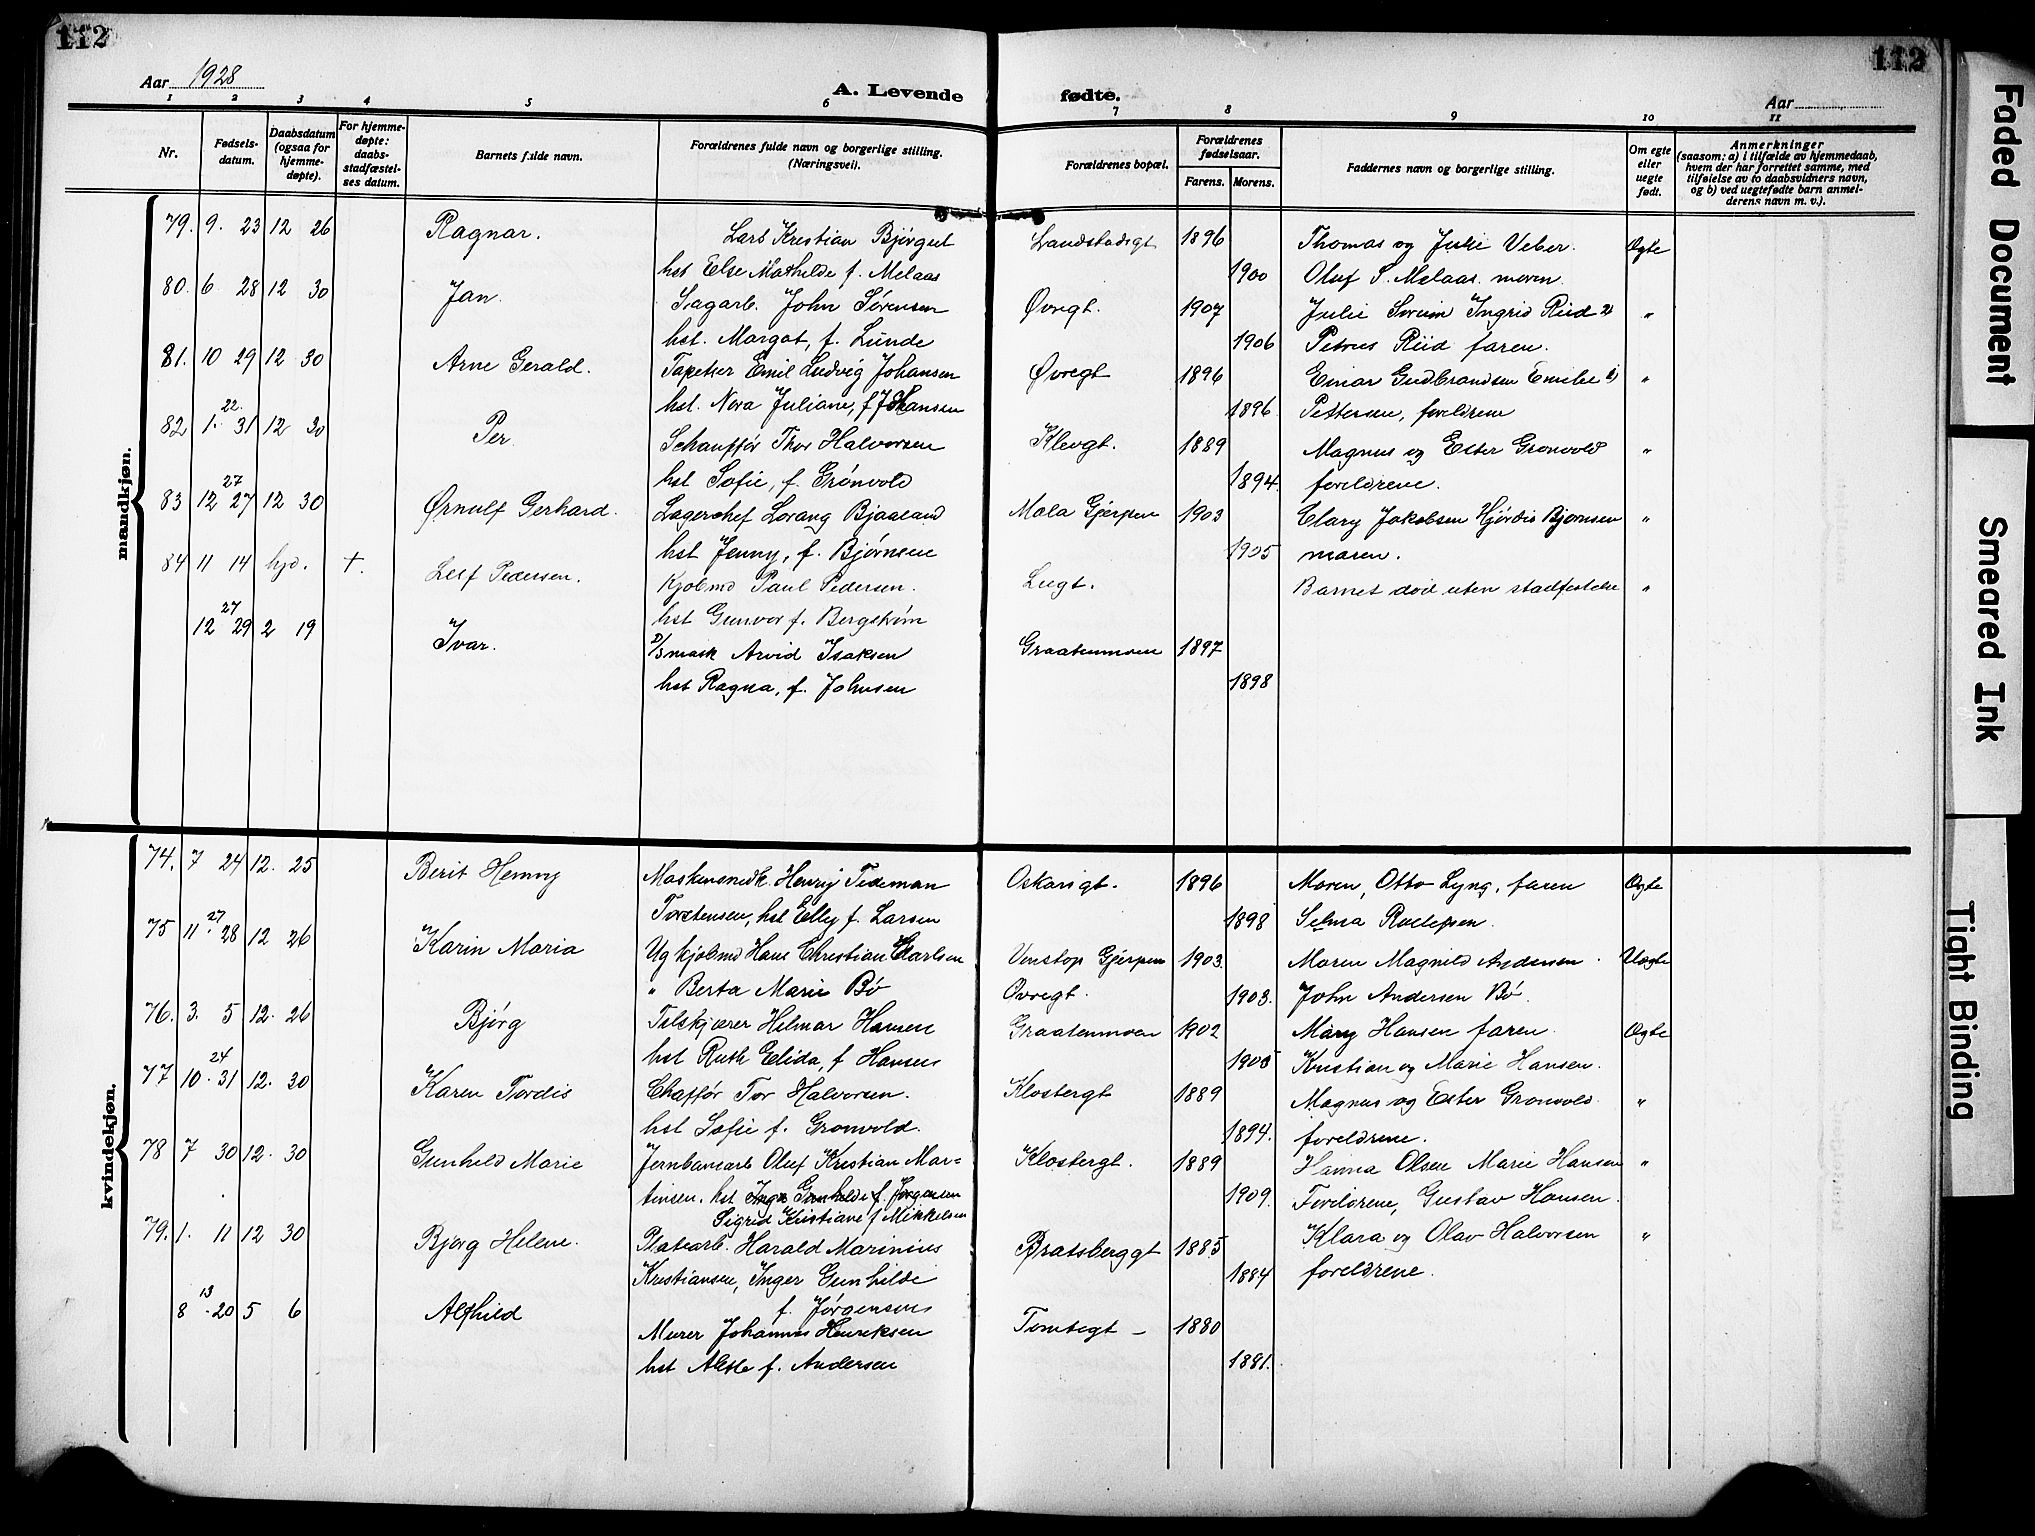 112
112
Aar 1928
A. Levende fødte.
Aar
1 2 3 4 5 6 7 8 9 10 11
Nr.
Fødsels-
datum.
Daabsdatum
(ogsaa for
hjemme-
døpte).
For hjemme-
døpte:
daabs-
stadfæstel-
ses datum.
Barnets fulde navn.
Forældrenes fulde navn og borgerlige stilling.
(Næringsvei).
Forældrenes bopæl.
Forældrenes
fødselsaar.
Farens. Morens.
Faddernes navn og borgerlige stilling.
Om egte
eller
uegte
født.
Anmerkninger
(saasom: a) i tilfælde av hjemmedaab,
hvem der har forrettet samme, med
tilføielse av to daabsvidners navn,
og b) ved uegtefødte barn anmel-
derens navn m. v.).
mandkjøn.
79. 9. 23 12 26 Ragnar. Lars Kristian Bjørget Landstadsgt 1896 Thomas og Julie Veber. Ægte
hst Else Mathilde f. Melaas 1900 Oluf S. Melaas. moren
80. 6 28 12 30 Jan. Sagarb. John Sørensen Øvregt. 1907 Julie Sorum Ingrid Riid "
hst. Margot, f. Lunde 1906 Petrus Riid faren.
81. 10 29 12 30 Arne Gerald. Tapetser Emil Ludvig Johansen Øvregt 1896 Einar Gudbrandsen Emilie "
hst. Nora Juliane, f. Johansen 1896 Pettersen, foreldrene
22
82 1. 31 12 30 Per. Schauffør Thor Halvorsen Klevgt. 1889 Magnus og Ester Gronvold "
hst Sofie, f. Grønvold 1894. foreldrene.
27
83 12 27 12 30 Ørnulf Gerhard. Lagerchef Lorang Bjaaland Mæla Gjerpen 1903 Clary Jakobsen Hjørdis Bjørnsen "
hst Jenny, f. Bjørnsen 1905 moren.
84 11 14 hjd. +. Leif Pedersen. Kjøbmd Paul Pedersen. Luegt. Barnet død uten stadfestelse "
hst Gunvor f. Bergstrøm
27
12 29 2 19 Ivar. Arvid Isaksen Graatenmoen 1897
hst Ragna, f. Johnsen 1898
kvindekjøn.
74. 7 24 12. 25 Berit Henny Maskinsnedk. Henry Tideman Oskarsgt. 1896 Moren, Otto Lyng, faren Ægte
Torstensen, hst Elly f. Larsen 1898 Selma
27
75 11. 28 12 26 Karin Maria Ug kjøbmd Hans Christian Carlsen Venstøp Gjerpen 1903. Maren Magnild Andersen. Uægte
" Berta Marie Bø Øvregt. 1903. John Andersen Bø.
76. 3. 5 12. 26 Bjørg Hilmar Hansen Graatenmoen 1902 Mary Hansen faren. Ægte
hst Ruth Elida, f Hansen 1905 Kristian og Marie Hansen.
24
77 10. 31 12. 30 Karen Tordis Chaffør Tor Halvorsen. Klostergt 1889 Magnus og Ester Gronvold. "
hst Sofie f. Gronvold. 1894. foreldrene.
78 7 30 12. 30 Gunhild Marie Jernbanearb Oluf Kristian Mar= Klostergt. 1889 Hanna Olsen Marie Hansen "
tinsen. hst Inga Gunhilde f. Jørgensen 1909. Foreldrene, Gustav Hansen.
Sigrid Kristiane f Mikkelsen
79. 1. 11 12 30 Bjørg Helene. Platearb. Harald Marinius Bratsberggt 1885 Klara og Olav Halvorsen "
Kristiansen, Inger Gunhilde 1884 foreldrene.
f. Jørgensen
13
8. 20 5 6 Alfhild Murer Johannes Henriksen Tomtegt – 1880
hst f. Andersen 1881.
Faded Document
Smeared Ink
Tight Binding